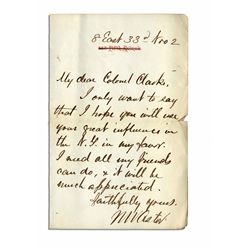 8 East 33d Nov 2
My dear Colonel Clark,
I only want to say
that I hope you will use
your great influence in
the N.Y. in my favor.
I need all my friends
can do, & it will be
much appreciated.
Faithfully yours.